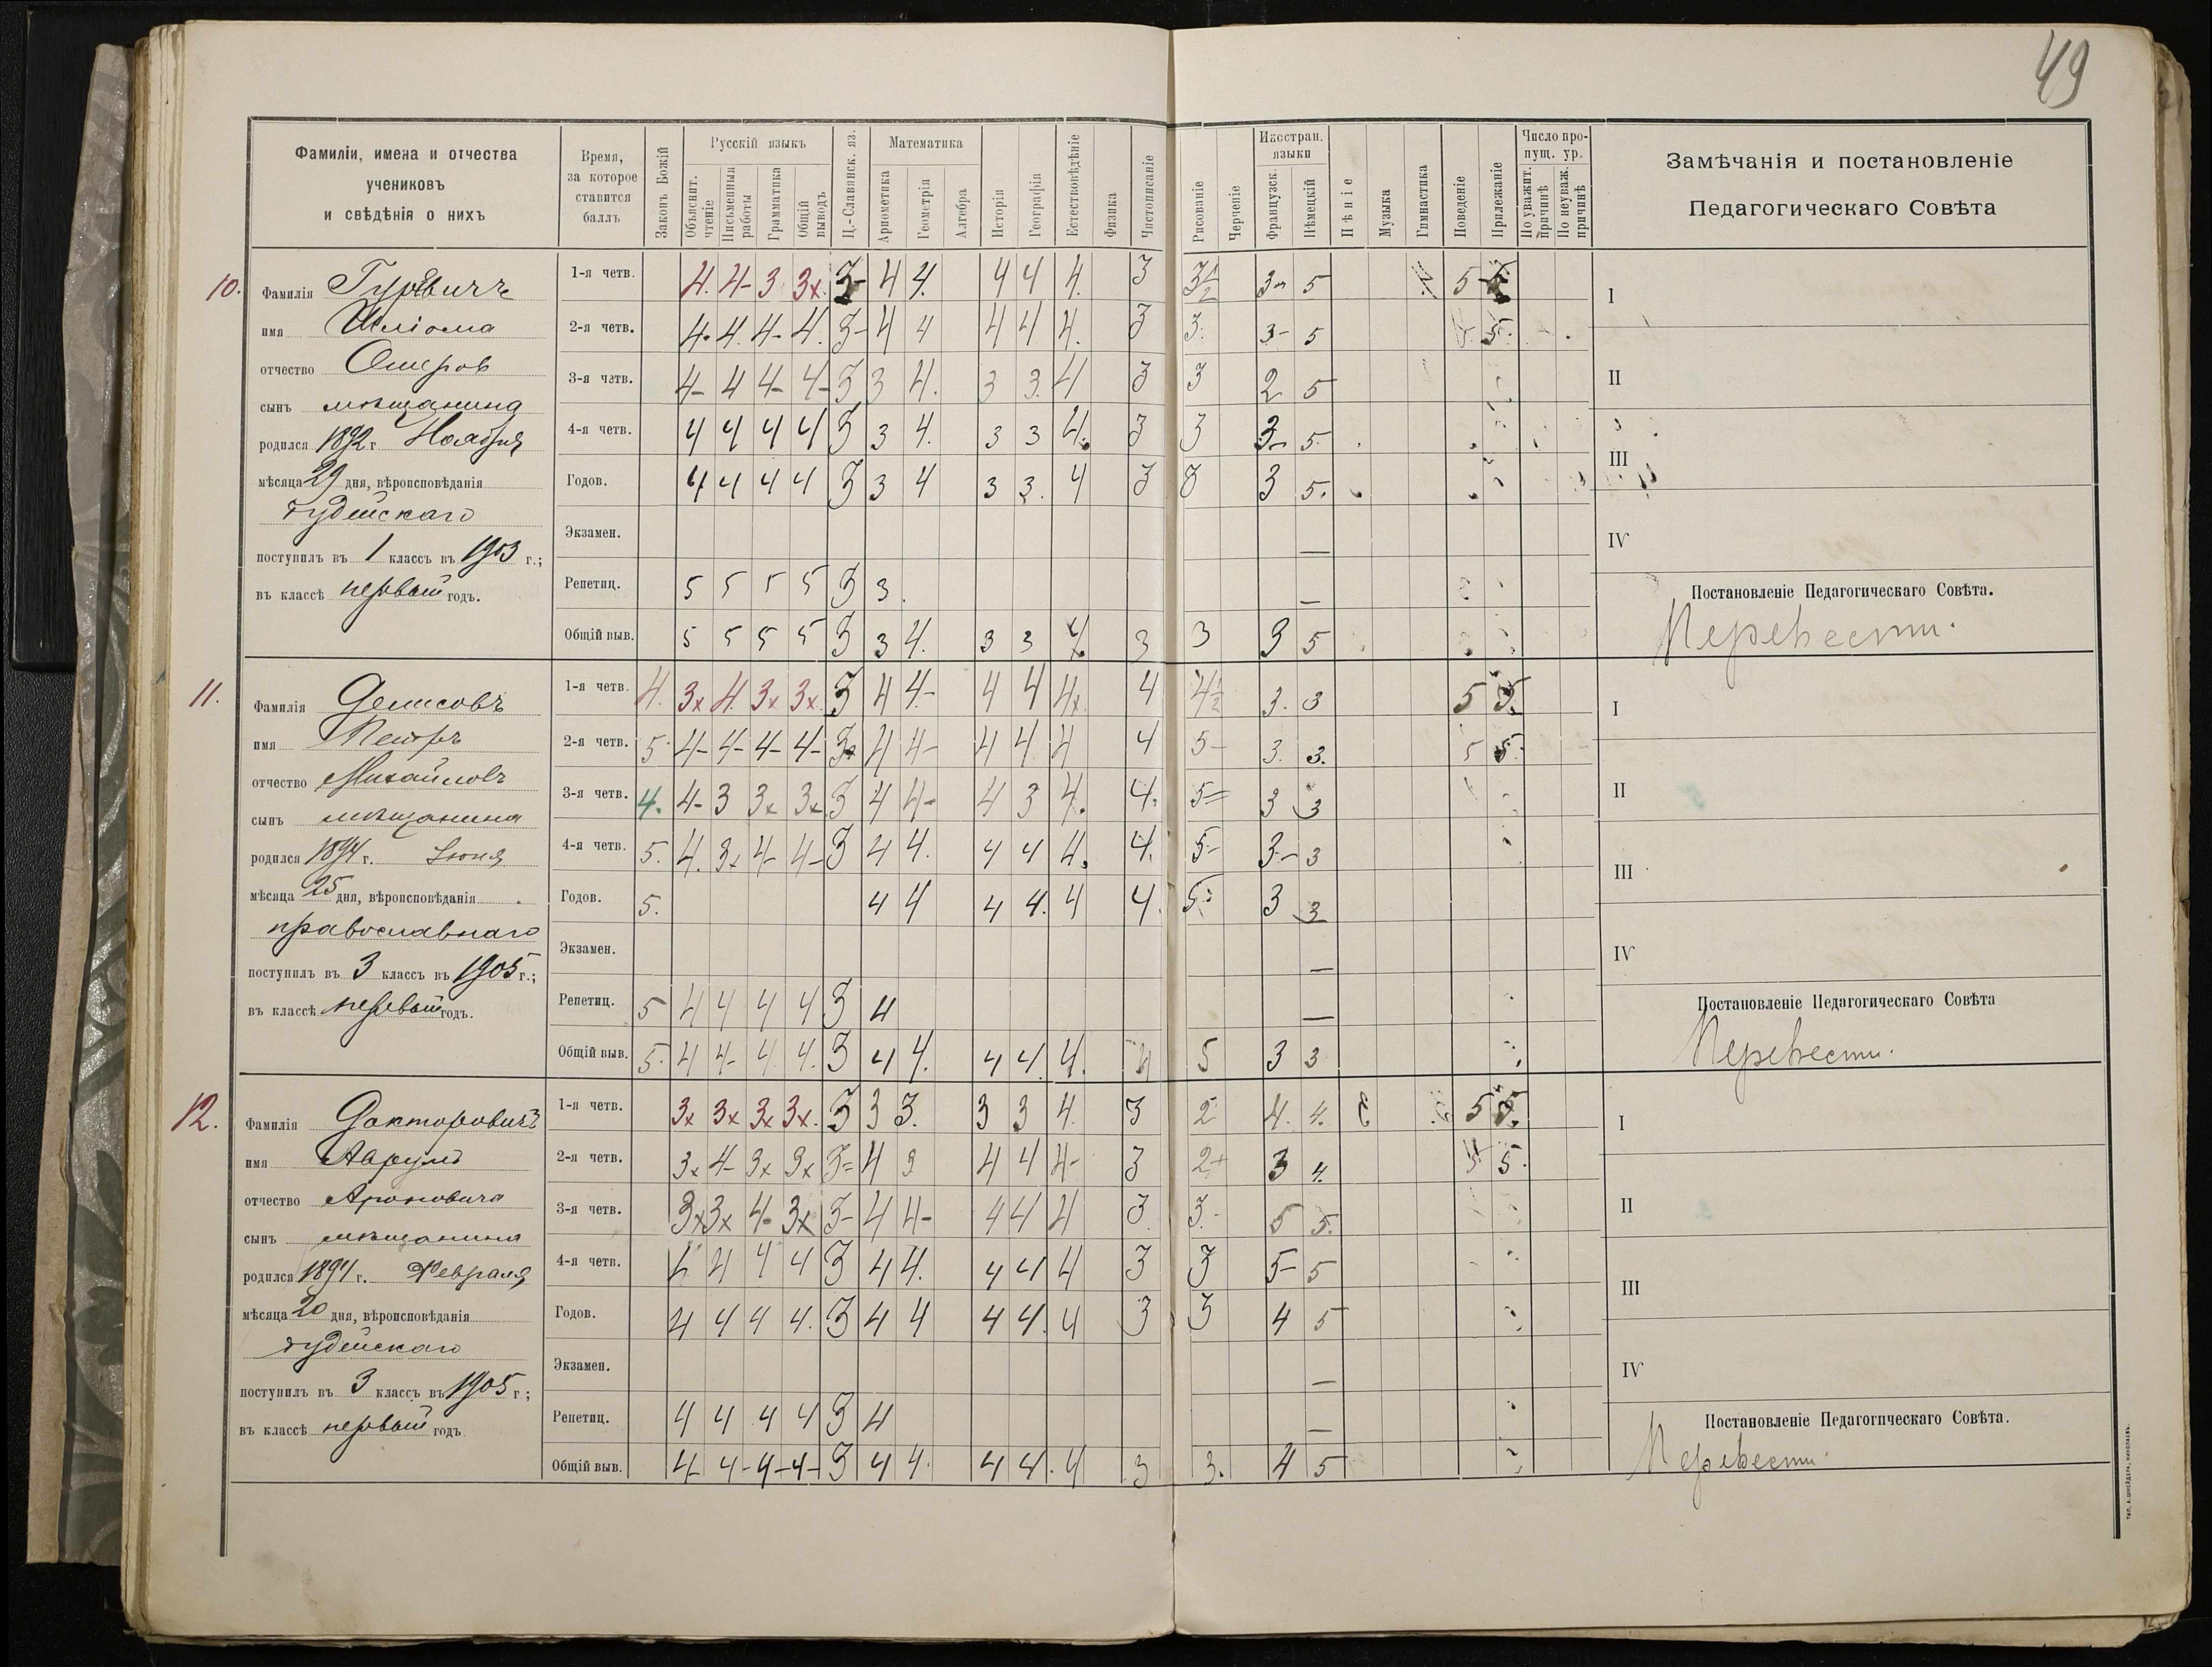 49
Фамиліи, имена и отчества
учениковъ
и свѣдѣнія о нихъ
Время,
за которое
ставится
баллъ
Законъ Божій
Русскій языкъ
Объяснит. чтеніе
Письменныя работы
Грамматика
Общій выводъ
Ц.-Славянск. яз.
Математика
Ариѳметика
Геометрія
Алгебра
Исторія
Географія
Естествовѣдѣніе
Физика
Чистописаніе
Рисованіе
Черченіе
Иностран.
языки
Французск.
Нѣмецкій
Пѣніе
Музыка
Гимнастика
Поведеніе
Прилежаніе
Число про-
пущ. ур.
По уважит. причинѣ
По неуваж. причинѣ
Замѣчанія и постановленіе
Педагогическаго Совѣта
10.
Фамилія Гуревичъ
имя Шліома
отчество Ошеров
сынъ мѣщанина
родился 1892 г. Ноября
мѣсяца 29 дня, вѣроисповѣданія
іудейскаго
поступилъ въ 1 классъ въ 1903 г.;
въ классѣ первый годъ.
1-я четв. 4. 4- 3 3x 3- 4 4. 4 4 4. 3 3½ 3- 5 5
2-я четв. 4. 4. 4- 4. 3- 4 4 4 4 4. 3 3. 3- 5 5.
3-я четв. 4- 4 4- 4- 3 3 4. 3 3. 4 3 3 2 5
4-я четв. 4 4 4 4 3 3 4. 3 3 4. 3 3 3- 5.
Годов. 4 4 4 4 3 3 4 3 3. 4 3 3 3 5.
Экзамен. —
Репетиц. 5 5 5 5 3 3. —
Общій выв. 5 5 5 5 3 3 4. 3 3 4. 3 3 3 5
I
II
III
IV
Постановленіе Педагогическаго Совѣта.
Перевести.
11.
Фамилія Денисовъ
имя Петръ
отчество Михайловъ
сынъ мѣщанина
родился 1894 г. Іюня
мѣсяца 25 дня, вѣроисповѣданія
православнаго
поступилъ въ 3 классъ въ 1905 г.;
въ классѣ первый годъ.
1-я четв. 4. 3x 4. 3x 3x. 3 4 4.- 4 4 4x 4 4½ 3. 3 5 5.
2-я четв. 5. 4- 4- 4- 4- 3 4 4- 4 4 4 4 5- 3. 3. 5 5.
3-я четв. 4. 4- 3 3x 3x 3 4 4- 4 3 4. 4. 5= 3 3
4-я четв. 5. 4. 3x 4- 4- 3 4 4. 4 4 4. 4. 5- 3- 3
Годов. 5. 4 4 4 4. 4 4. 5- 3 3
Экзамен. —
Репетиц. 5 4 4 4 4 3 4 —
Общій выв. 5. 4 4- 4 4. 3 4 4. 4 4. 4. 4 5 3 3
I
II
III
IV
Постановленіе Педагогическаго Совѣта
Перевести.
12.
Фамилія Докторовичъ
имя
отчество Ароновича
сынъ мѣщанина
родился 1894 г. Февраля
мѣсяца 20 дня, вѣроисповѣданія
іудейскаго
поступилъ въ 3 классъ въ 1905 г;
въ классѣ первый годъ
1-я четв. 3x 3x 3x 3x. 3 3 3. 3 3 4. 3 2 4. 4. 5 5.
2-я четв. 3x 4- 3x 3x 3= 4 3 4 4 4- 3 2+ 3 4. 5 5.
3-я четв. 3x 3x 4- 3x 3- 4 4- 4 4 4 3 3.- 5 5.
4-я четв. 4 4 4 4 3 4 4. 4 4 4 3 3 5- 5
Годов. 4 4 4 4. 3 4 4 4 4. 4 3 3 4 5
Экзамен. —
Репетиц. 4 4 4 4 3 4 —
Общій выв. 4- 4- 4- 4- 3 4 4. 4 4. 4 3 3. 4 5
I
II
III
IV
Постановленіе Педагогическаго Совѣта.
Перевести.
ТИП. А. ШНЕЙДЕРА, НИКОЛАЕВЪ.